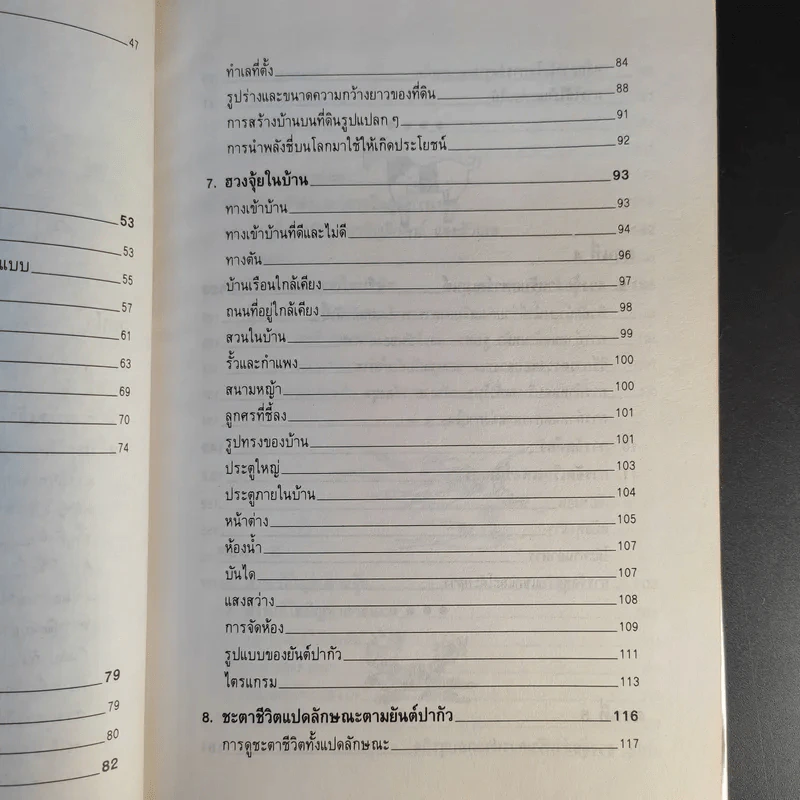 47
53
53
แบบ 55
57
61
63
69
70
74
79
79
80
82
ทำเลที่ตั้ง 84
รูปร่างและขนาดความกว้างยาวของที่ดิน 88
การสร้างบ้านบนที่ดินรูปแปลก ๆ 91
การนำพลังชี่บนโลกมาใช้ให้เกิดประโยชน์ 92
7. ฮวงจุ้ยในบ้าน 93
ทางเข้าบ้าน 93
ทางเข้าบ้านที่ดีและไม่ดี 94
ทางตัน 96
บ้านเรือนใกล้เคียง 97
ถนนที่อยู่ใกล้เคียง 98
สวนในบ้าน 99
รั้วและกำแพง 100
สนามหญ้า 100
ลูกศรที่ชี้ลง 101
รูปทรงของบ้าน 101
ประตูใหญ่ 103
ประตูภายในบ้าน 104
หน้าต่าง 105
ห้องน้ำ 107
บันได 107
แสงสว่าง 108
การจัดห้อง 109
รูปแบบของยันต์ปากัว 111
ไตรแกรม 113
8. ชะตาชีวิตแปดลักษณะตามยันต์ปากัว 116
การดูชะตาชีวิตทั้งแปดลักษณะ 117